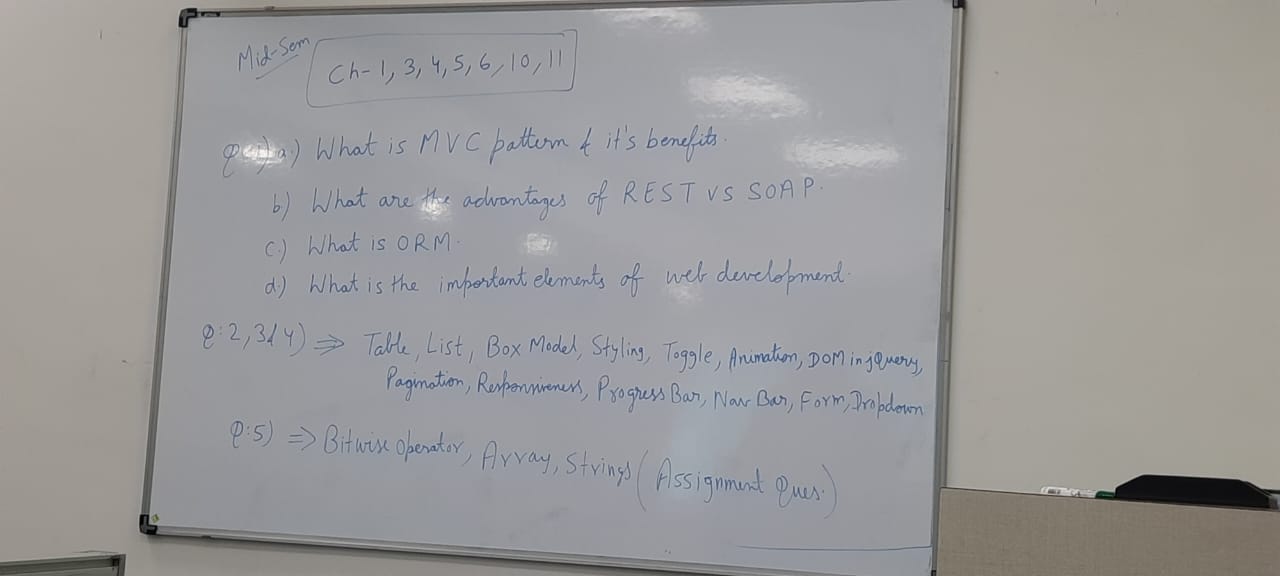 Mid-Sem
Ch-1, 3, 4, 5, 6, 10, 11
Q:1) a.) What is MVC pattern & it's benefits.
b) What are the advantages of REST vs SOAP.
c.) What is ORM.
d.) What is the important elements of web development.
Q:2, 3 & 4) ⇒ Table, List, Box Model, Styling, Toggle, Animation, DOM in jQuery,
Pagination, Responsiveness, Progress Bar, Nav Bar, Form, Dropdown
Q:5) ⇒ Bitwise Operator, Array, Strings (Assignment Ques.)